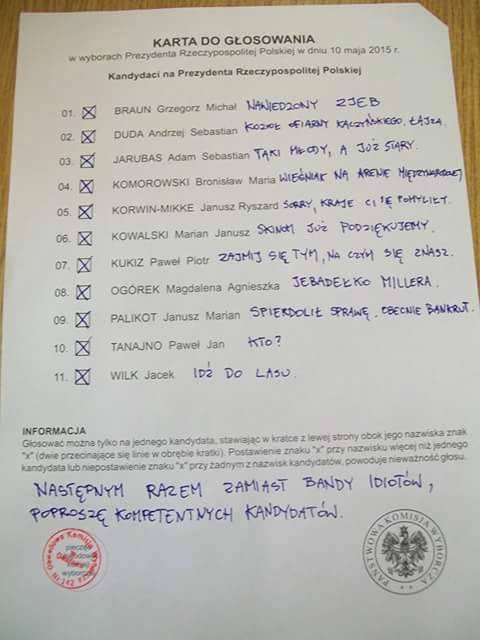 KARTA DO GŁOSOWANIA
w wyborach Prezydenta Rzeczypospolitej Polskiej w dniu 10 maja 2015 r.
Kandydaci na Prezydenta Rzeczypospolitej Polskiej
01. BRAUN Grzegorz Michał NAWIEDZONY ZJEB
02. DUDA Andrzej Sebastian KOZIOŁ OFIARNY KACZYŃSKIEGO. ŁAJZA.
03. JARUBAS Adam Sebastian TAKI MŁODY, A JUŻ STARY.
04. KOMOROWSKI Bronisław Maria WIEŚNIAK NA ARENIE MIĘDZYNARODOWEJ
05. KORWIN-MIKKE Janusz Ryszard SORRY, KRAJE CI SIĘ POMYLIŁY.
06. KOWALSKI Marian Janusz SKINOM JUŻ PODZIĘKUJEMY.
07. KUKIZ Paweł Piotr ZAJMIJ SIĘ TYM, NA CZYM SIĘ ZNASZ.
08. OGÓREK Magdalena Agnieszka JEBADEŁKO MILLERA.
09. PALIKOT Janusz Marian SPIERDOLIŁ SPRAWĘ. OBECNIE BANKRUT.
10. TANAJNO Paweł Jan KTO?
11. WILK Jacek IDŹ DO LASU.
INFORMACJA
Głosować można tylko na jednego kandydata, stawiając w kratce z lewej strony obok jego nazwiska znak
"x" (dwie przecinające się linie w obrębie kratki). Postawienie znaku "x" przy nazwisku więcej niż jednego
kandydata lub niepostawienie znaku "x" przy żadnym z nazwisk kandydatów, powoduje nieważność głosu.
NASTĘPNYM RAZEM ZAMIAST BANDY IDIOTÓW,
POPROSZĘ KOMPETENTNYCH KANDYDATÓW.
Obwodowa Komisja
pieczęć
obwodowej
komisji
wyborczej
PAŃSTWOWA KOMISJA WYBORCZA